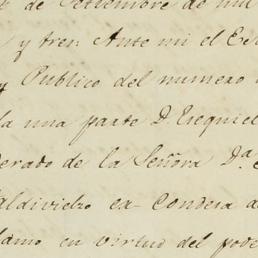 de Setiembre de mil
y tres: Ante mi el Es
y Publico del numero
la una parte D. Ezequiel
derado de la Señora Da.
aldivielzo ex-Condeza d
lamo en virtud del pode